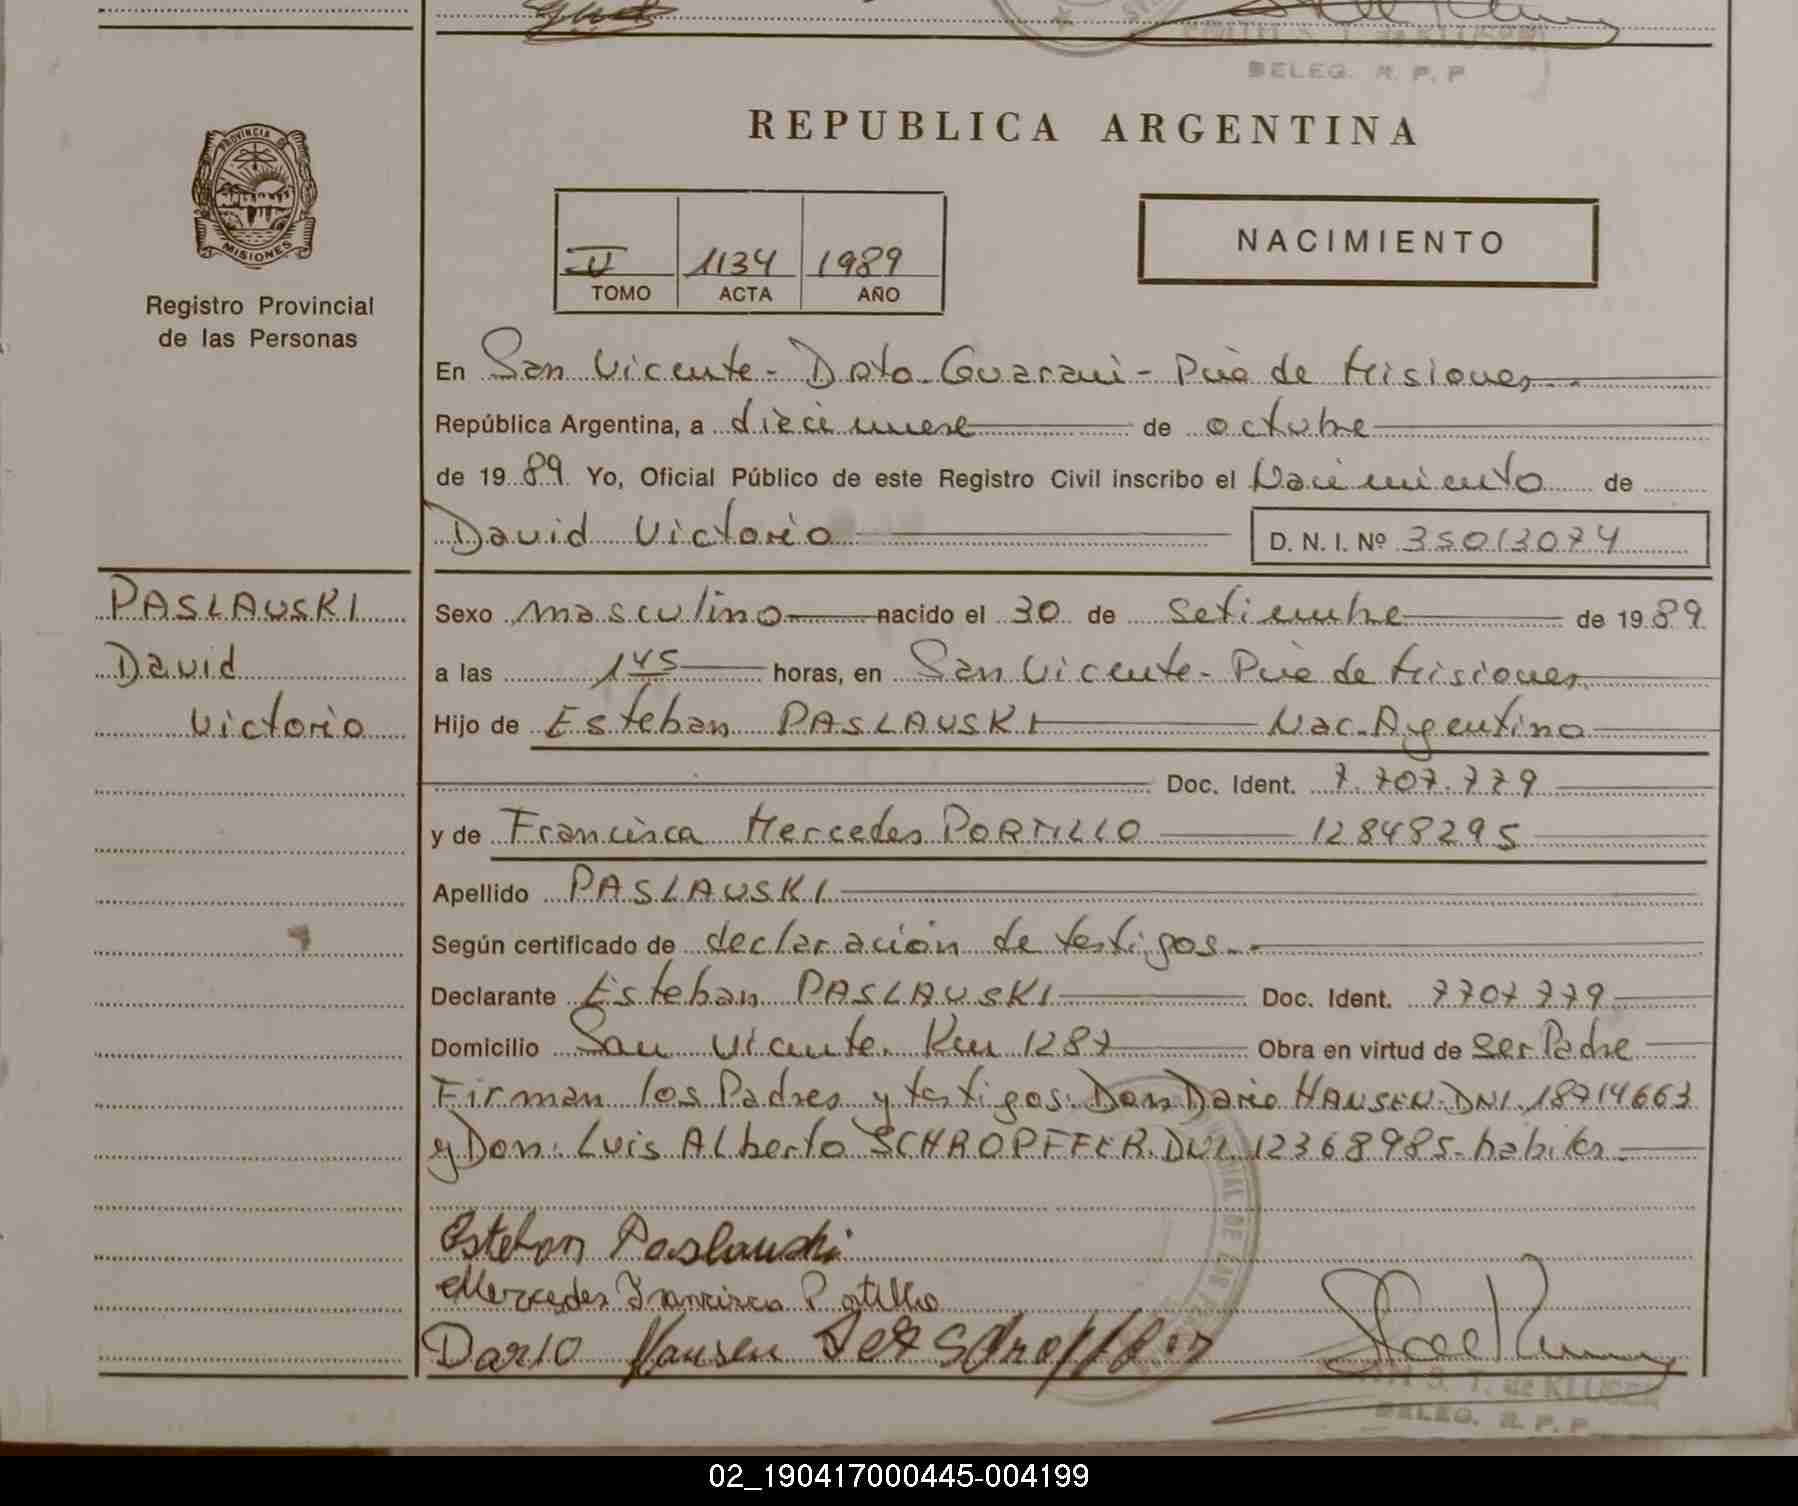 DELEG. R. P. P
REPUBLICA ARGENTINA
PROVINCIA DE
MISIONES
Registro Provincial
de las Personas
II 1134 1989
TOMO ACTA AÑO
NACIMIENTO
En San Vicente - Dpto. Guarani - Pcia de Misiones
República Argentina, a diecinueve de octubre
de 1989 Yo, Oficial Público de este Registro Civil inscribo el Nacimiento de
David Victorio D. N. I. Nº 35013074
PASLAUSKI
David
Victorio
Sexo masculino nacido el 30 de Setiembre de 1989
a las 1 45 horas, en San Vicente - Pcia de Misiones
Hijo de Esteban PASLAUSKI Nac. Argentino
Doc. Ident. 7.707.779
y de Francisca Mercedes PORTILLO 12848295
Apellido PASLAUSKI
Según certificado de declaración de testigos.-
Declarante Esteban PASLAUSKI Doc. Ident. 7707779
Domicilio San Vicente. Km 1287 Obra en virtud de Ser Padre
Firman los Padres y testigos: Don Dario HANSEN. DNI. 18714663
y Don: Luis Alberto SCHROPFFER. DNI. 12368985. habiles
Esteban Paslauski
Mercedes Francisca Portillo
Dario Hansen
S. T. de KLUSER
DELEG. R. P. P
02_190417000445-004199